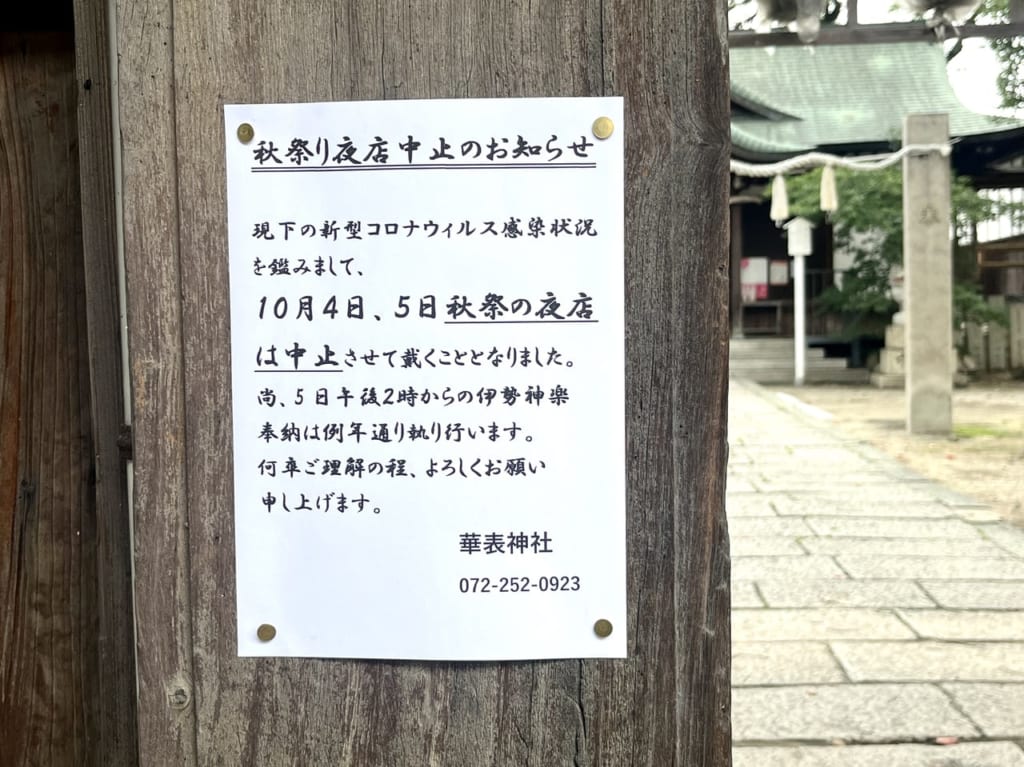 秋祭り夜店中止のお知らせ
現下の新型コロナウィルス感染状況
を鑑みまして、
10月4日、5日秋祭の夜店
は中止させて戴くこととなりました。
尚、5日午後2時からの伊勢神楽
奉納は例年通り執り行います。
何卒ご理解の程、よろしくお願い
申し上げます。
華表神社
072-252-0923